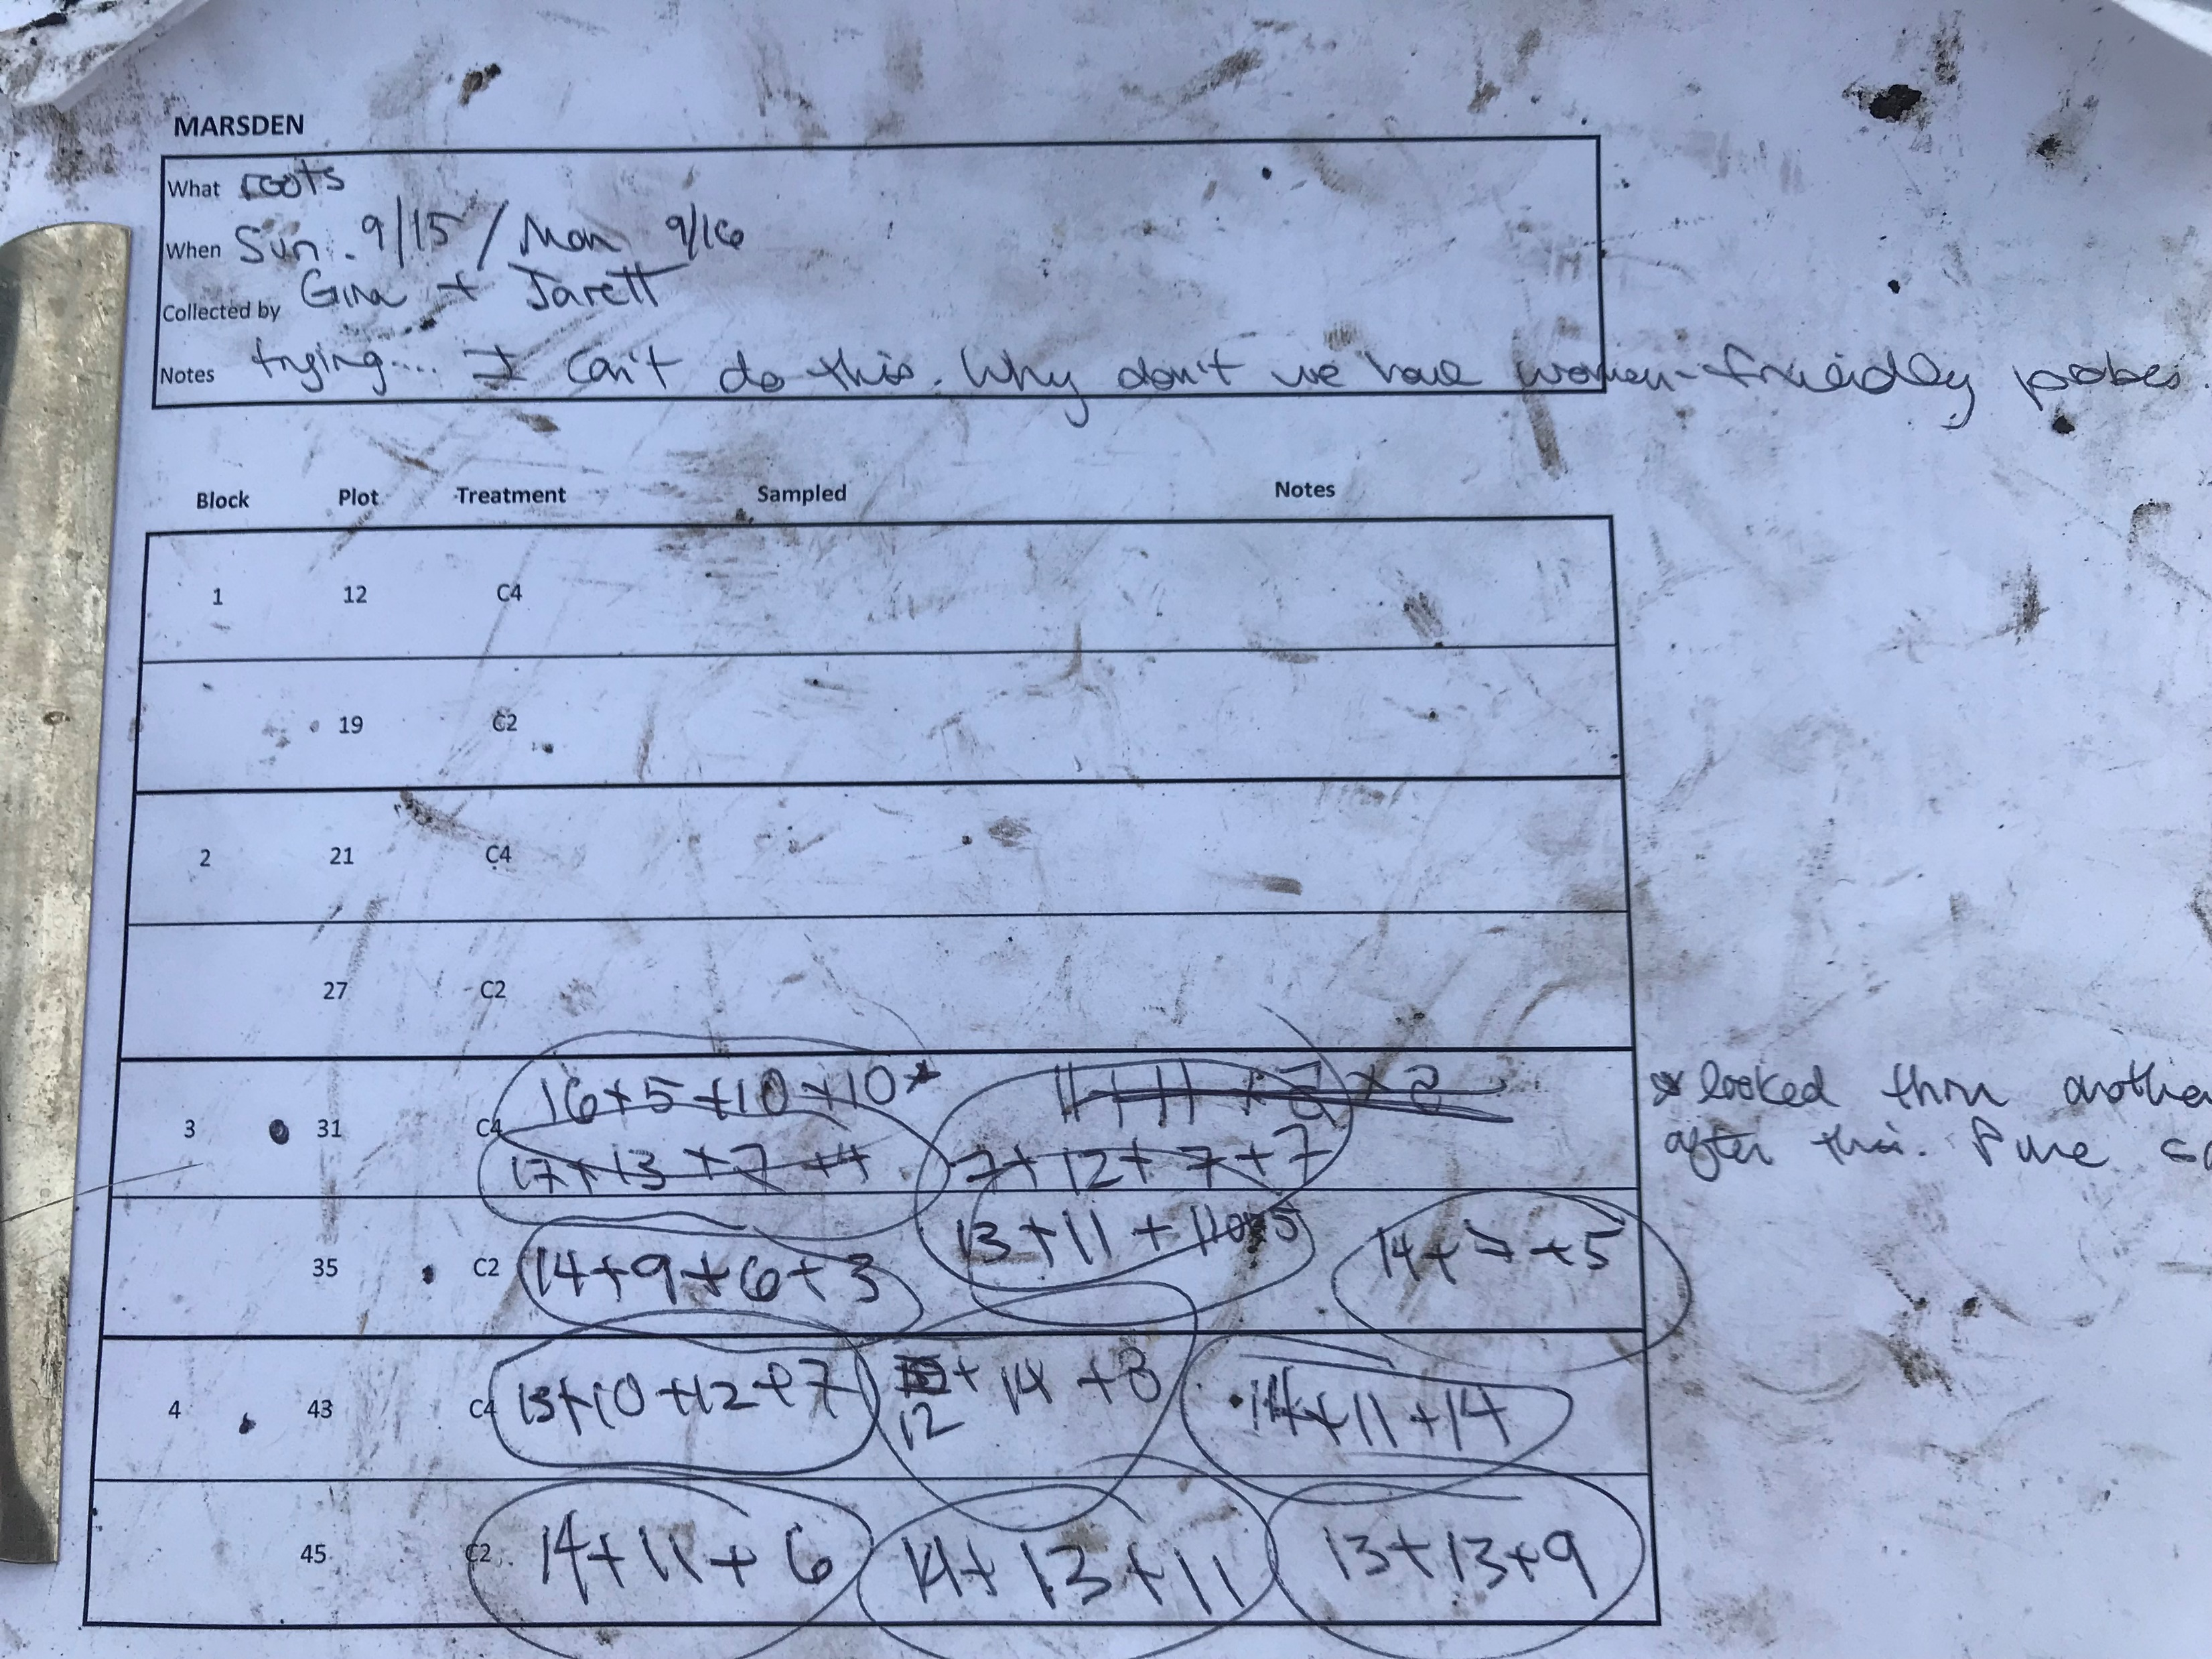 MARSDEN
What roots
When Sun. 9/15 / Mon 9/16
Collected by Gina + Jarett
Notes trying.... I can't do this. Why don't we have women-friendly probes.
Block Plot Treatment Sampled Notes
1 12 C4
19 C2
2 21 C4
27 C2
16+5+10+10*
* looked thru
3 31 C4
after this. Pure
17+13+7+4 7+12+7+7
13+11+11 14+7+5
35 C2 14+9+6+3
4 43 C4 13+10+12+7 12 + 14 +8 14+11+14
45 C2 14+11+6 14+13+11 13+13+9